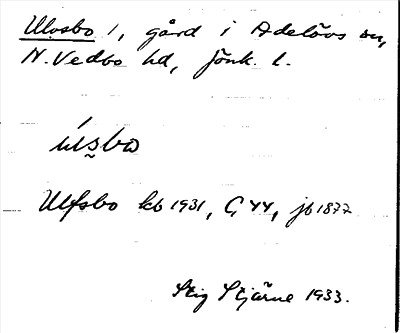 Ulvsbo 1, gård i Adelövs sn,
N. Vedbo hd, Jönk. l.
ús̬bo
Ulfsbo kb 1931, G 44, jb 1877
Stig Stjärne 1933.